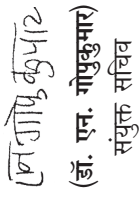 (डॉ. एन. गोपुकुमार)
संयुक्त सचिव